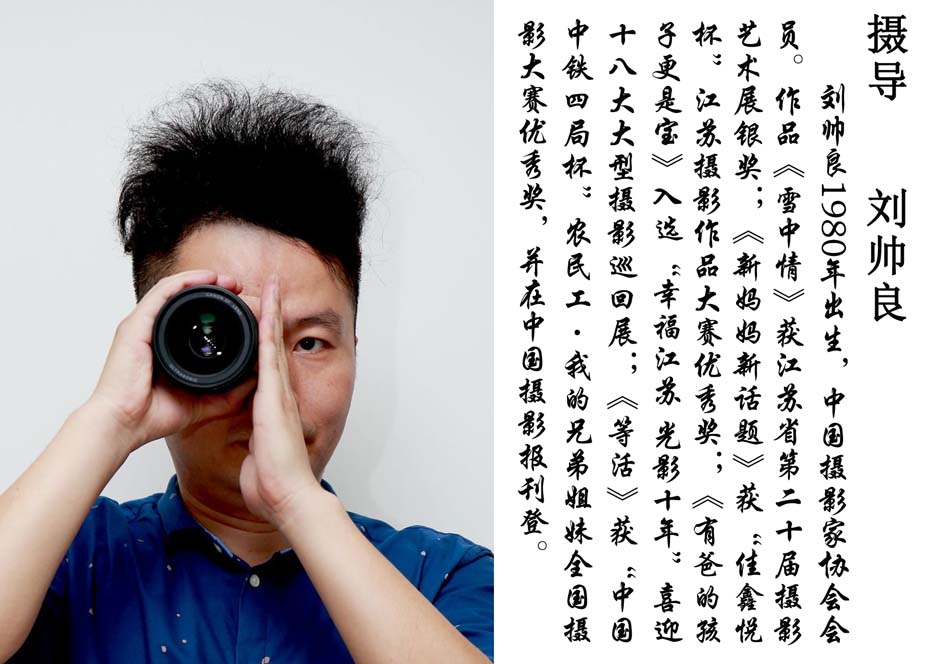 摄导 刘帅良
刘帅良1980年出生，中国摄影家协会会
员。作品《雪中情》获江苏省第二十届摄影
艺术展银奖；《新妈妈新话题》获“佳鑫悦
杯”江苏摄影作品大赛优秀奖；《有爸的孩
子更是宝》入选“幸福江苏 光影十年”喜迎
十八大大型摄影巡回展；《等活》获“中国
中铁四局杯”农民工·我的兄弟姐妹全国摄
影大赛优秀奖，并在中国摄影报刊登。